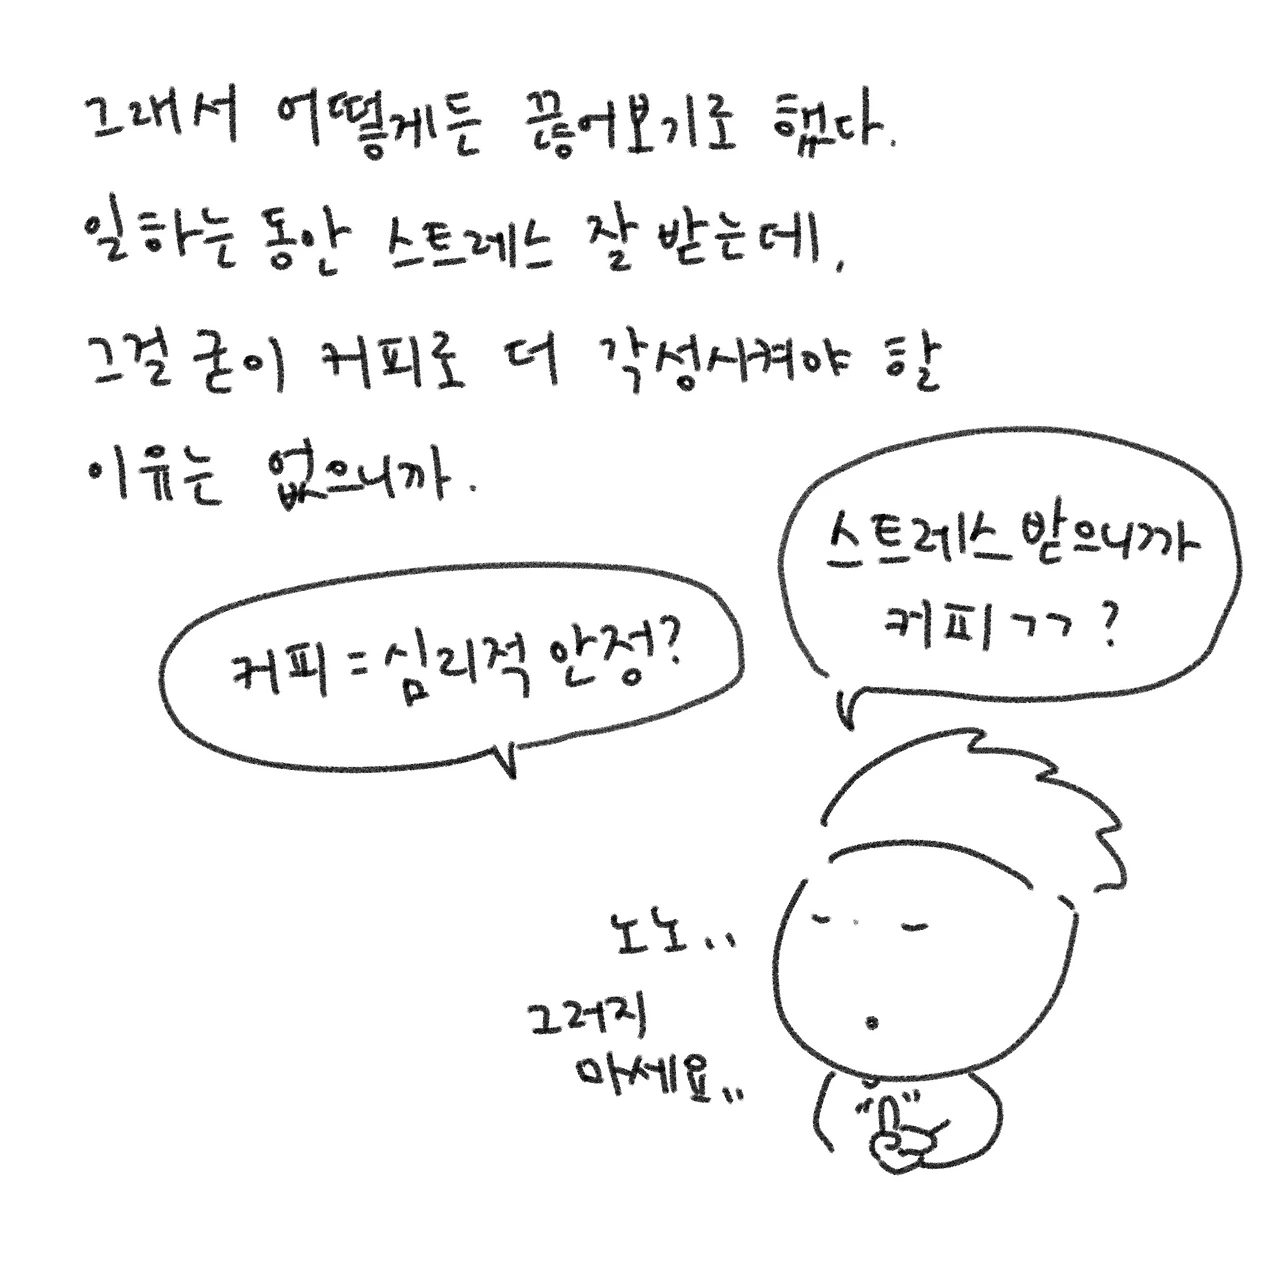 그래서 어떻게든 끊어보기로 했다.
일하는 동안 스트레스 잘 받는데,
그걸 굳이 커피로 더 각성시켜야 할
이유는 없으니까.
스트레스 받으니까
커피 ㄱㄱ ?
커피 = 심리적 안정?
노노..
그러지
마세요..